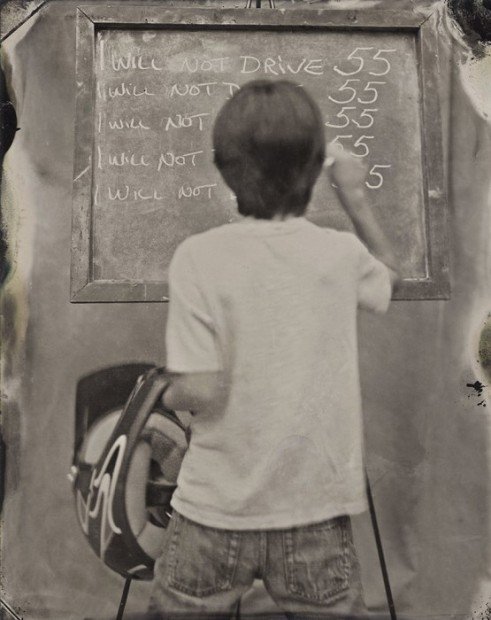 I WILL NOT DRIVE 55
I WILL NOT D 55
I WILL NOT 55
I WILL NOT 55
I WILL NOT 5